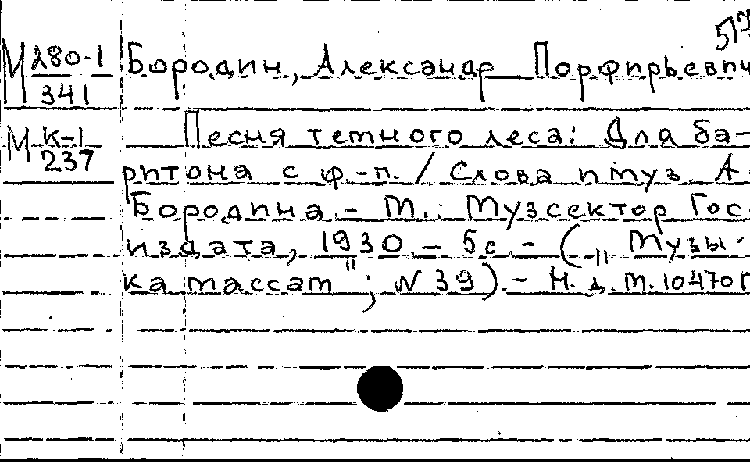 517
М Л80-1 Бородин, Александр Порфирьевич
341
М К-1 Песня темного леса: Для ба-
237 ритона с ф.-п. / Слова и муз. А.
Бородина. - М.: Музсектор Гос-
издата, 1930. - 5 с. - („Музы-
ка массам"; № 39). - Н. д. М. 10470 Г